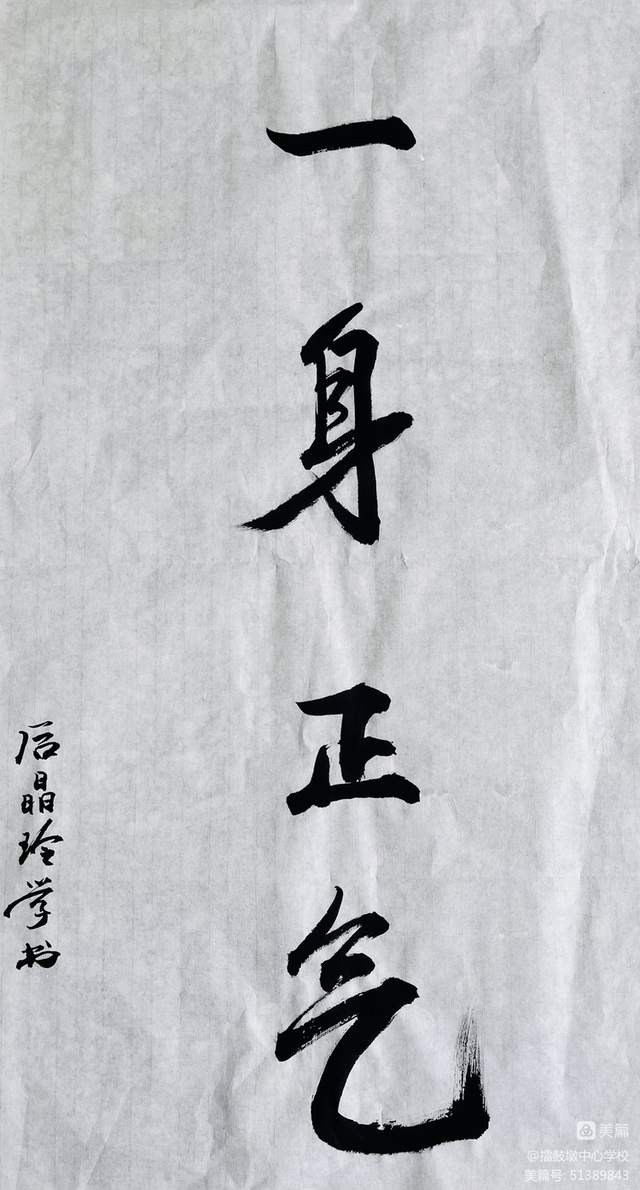 一身正气
后晶玲学书
美篇
@擂鼓墩中心学校
美篇号: 51389843